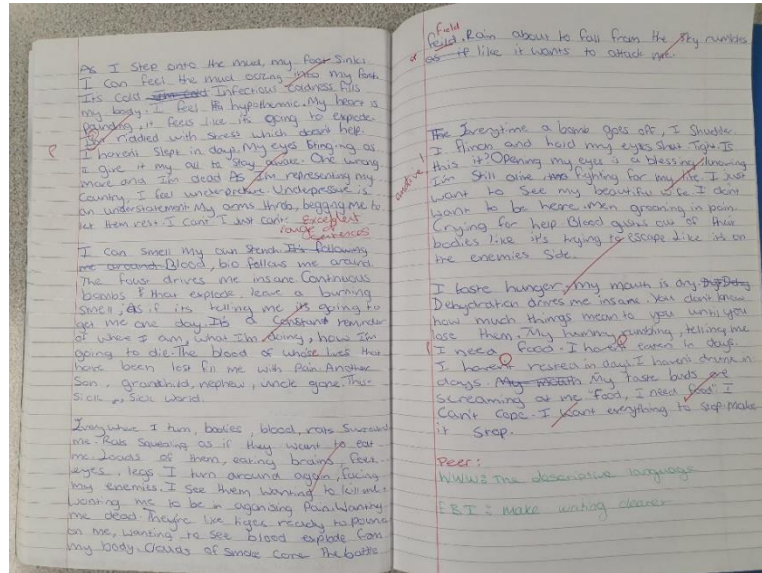 As I Step onto the mud, my foot Sinks
I can feel the mud oozing into my foot.
Its cold Infectious coldness fills
my body. I feel hypothermic. My heart is
pounding, it feels like its going to explode.
riddled with stress which doesnt help.
I havent Slept in days. My eyes
I give it my all to stay awake. One wrong
move and I'm dead As I'm representing my
Country, I feel under pressure. Underpressure is
an understatement. My arms throb, begging me to
let them rest. I Cant I Just Cant.
Excellent
range of
sentences
I can smell my own Stench. Its following
me around. Blood, bio follows me around.
The drives me insane. Continuous
bombs that explode, leave a burning
smell, As if its telling me its going to
get me one day. Its a Constant reminder
of where I am, what I'm doing, how I'm
going to die. The blood of whose lives that
have been lost fill me with Pain. Another
Son, grandchild, nephew, uncle gone. This
Sick, Sick world.
Everywhere I turn, bodies, blood, rats Surround
me. Rats Squealing as if they want to eat
me. Loads of them, eating brains,
eyes, legs I turn around again, facing
my enemies. I see them wanting to kill me.
Wanting me to be in agonising Pain. Wanting
me dead. They're like tigers ready to pounce
on me, wanting to see blood explode from
my body. Clouds of Smoke cover The battle
field
feild. Rain about to fall from the Sky rumbles
as if like it wants to attack me.
The Everytime a bomb goes off, I Shudder.
I flinch and hold my eyes Shut Tight. Is
this it? Opening my eyes is a blessing, knowing
I'm Still alive fighting for my life. I Just
want to See my beautiful wife I dont
want to be heare. Men groaning in pain.
Crying for help Blood gushes out of their
bodies like it's trying to escape Like its on
the enemies Side.
emotive!
I taste hunger, my mouth is dry.
Dehydration drives me insane. You dont know
how much things mean to you until you
lose them. My tummy rumbling, telling me
I need food. I havent eaten in days.
I havent rested in days. I havent drunk in
days. My mouth My taste buds are
screaming at me "food, I need food" I
Can't Cope. I want everything to stop. Make
it Stop.
Peer:
WWW: The descriptive language
EBI: Make writing clearer